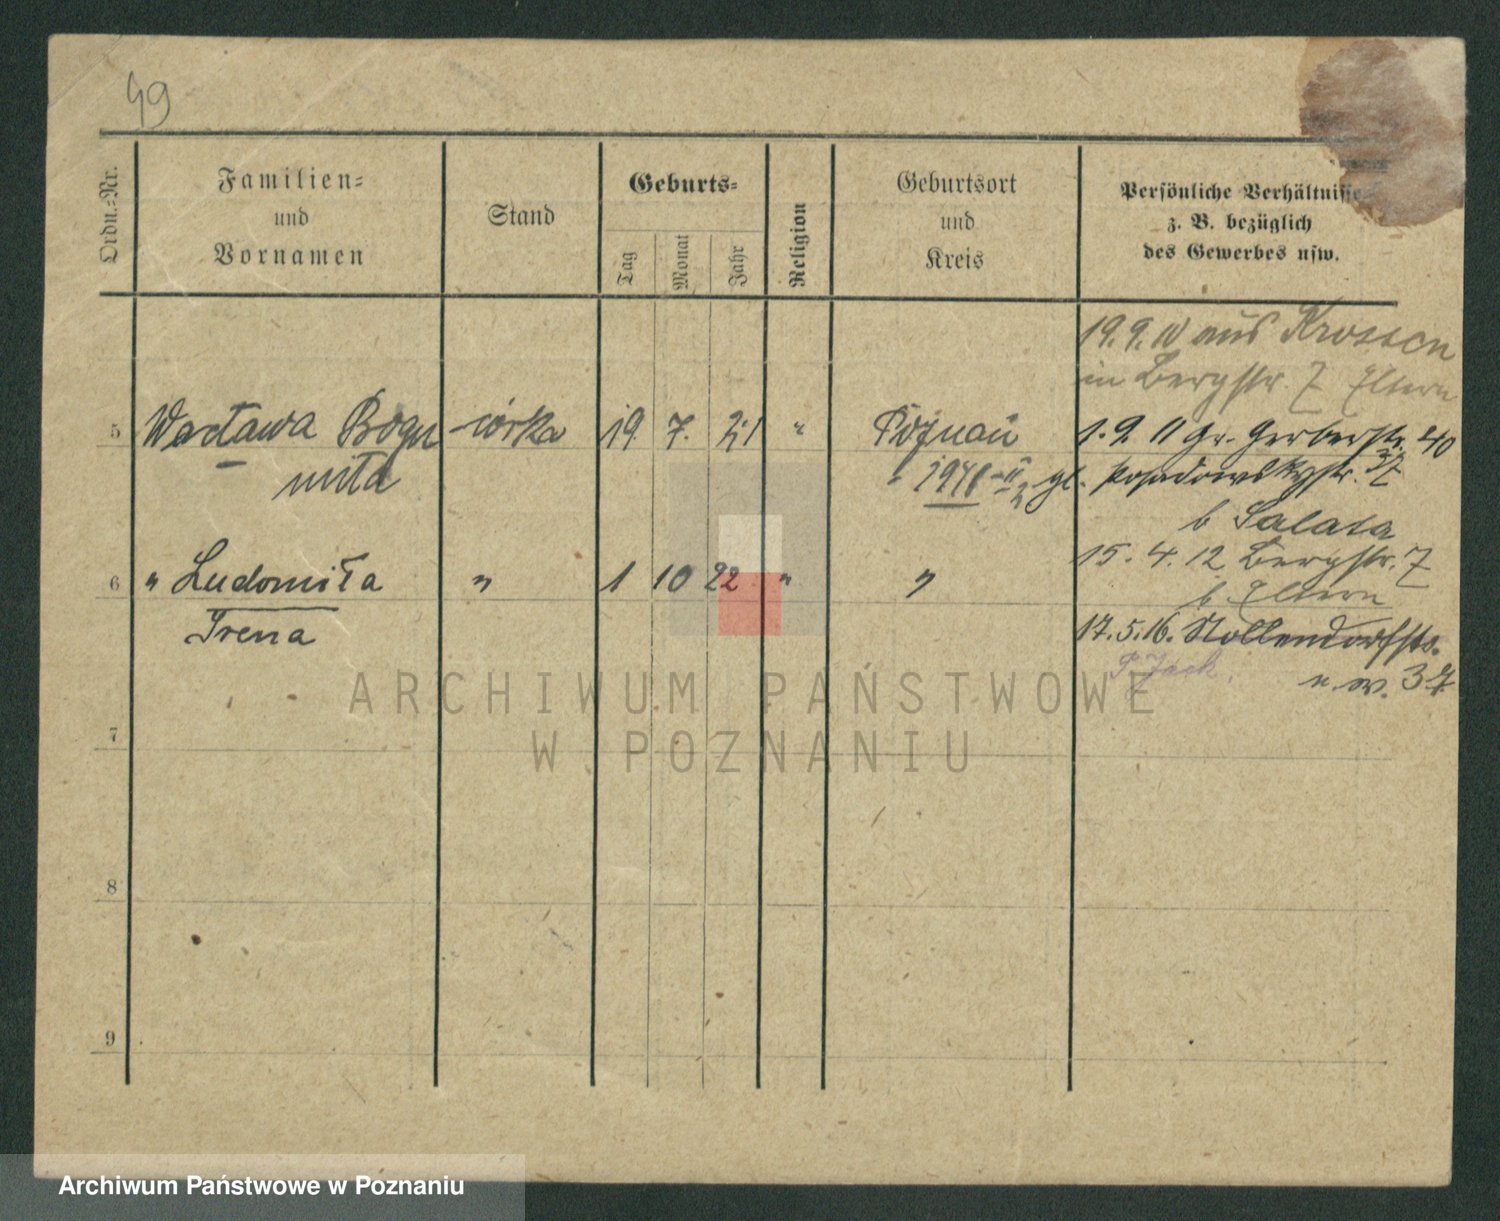 49
Ordn.-Nr.
Familien-
und
Vornamen
Stand
Geburts-
Tag
Monat
Jahr
Religion
Geburtsort
und
Kreis
Persönliche Verhältnisse
z. B. bezüglich
des Gewerbes usw.
19. 9. 10 aus Krossen
in Bergstr. 7 Eltern
5 Wacława Bogu córka 19. 7. 21 " Poznań 1. 9. 11 Gr. Gerberstr. 40
miła 1948 gl. Posadowskystr. 37
b Salata
15. 4. 12 Bergstr. 7
6 " Ludomiła " 1 10 22 " "
b Eltern
Irena 17. 5. 16. Nollendorfstr.
37
7
8
9
ARCHIWUM PAŃSTWOWE
W POZNANIU
Archiwum Państwowe w Poznaniu